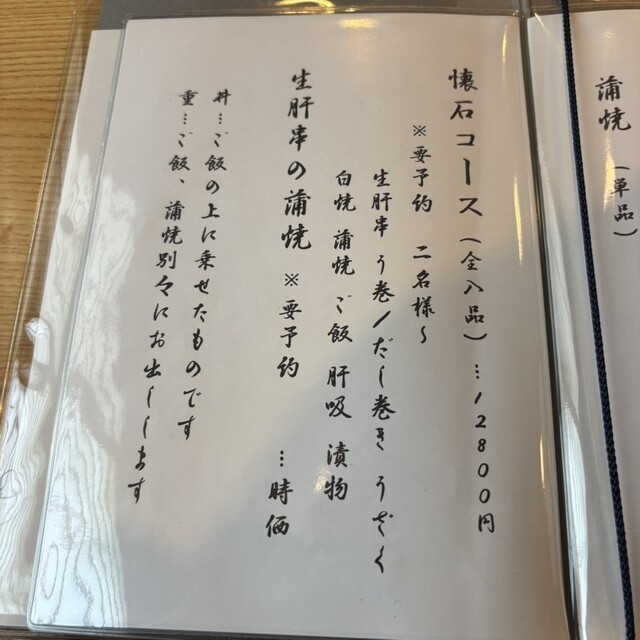 蒲焼（単品）
懐石コース（全八品）…12800円
※要予約 二名様～
生肝串 う巻/だし巻き うざく
白焼 蒲焼 ご飯 肝吸 漬物
生肝串の蒲焼 ※要予約 …時価
丼…ご飯の上に乗せたものです
重…ご飯、蒲焼別々にお出しします